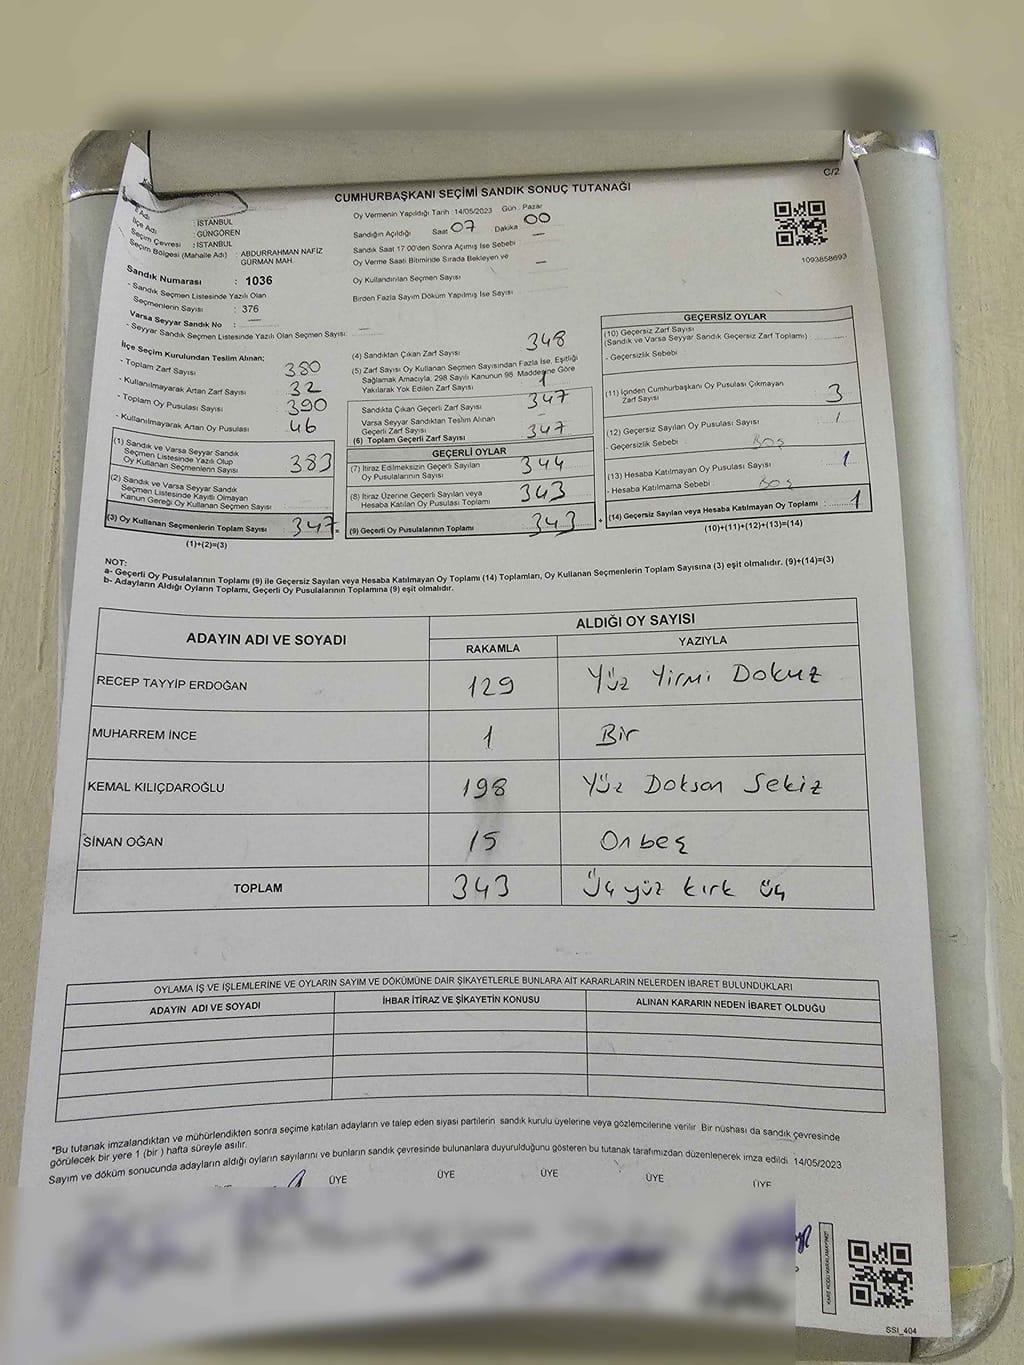 C/2
CUMHURBAŞKANI SEÇİMİ SANDIK SONUÇ TUTANAĞI
İl Adı : İSTANBUL
İlçe Adı : GÜNGÖREN
Seçim Çevresi : İSTANBUL
Seçim Bölgesi (Mahalle Adı) : ABDURRAHMAN NAFİZ
GÜRMAN MAH.
Sandık Numarası : 1036
- Sandık Seçmen Listesinde Yazılı Olan
Seçmenlerin Sayısı : 376
Varsa Seyyar Sandık No : —
- Seyyar Sandık Seçmen Listesinde Yazılı Olan Seçmen Sayısı: —
Oy Vermenin Yapıldığı Tarih : 14/05/2023 Gün : Pazar
Sandığın Açıldığı Saat 07 Dakika 00
Sandık Saat 17.00'den Sonra Açılmış İse Sebebi —
Oy Verme Saati Bitiminde Sırada Bekleyen ve
Oy Kullandırılan Seçmen Sayısı —
Birden Fazla Sayım Döküm Yapılmış İse Sayısı
1093858693
İlçe Seçim Kurulundan Teslim Alınan;
- Toplam Zarf Sayısı 380
- Kullanılmayarak Artan Zarf Sayısı 32
- Toplam Oy Pusulası Sayısı 390
- Kullanılmayarak Artan Oy Pusulası 46
(1) Sandık ve Varsa Seyyar Sandık
Seçmen Listesinde Yazılı Olup
Oy Kullanan Seçmenlerin Sayısı 383
(2) Sandık ve Varsa Seyyar Sandık
Seçmen Listesinde Kayıtlı Olmayan
Kanun Gereği Oy Kullanan Seçmen Sayısı
(3) Oy Kullanan Seçmenlerin Toplam Sayısı 347 =
(1)+(2)=(3)
(4) Sandıktan Çıkan Zarf Sayısı 348
(5) Zarf Sayısı Oy Kullanan Seçmen Sayısından Fazla İse, Eşitliği
Sağlamak Amacıyla, 298 Sayılı Kanunun 98. Maddesine Göre
Yakılarak Yok Edilen Zarf Sayısı 1
Sandıkta Çıkan Geçerli Zarf Sayısı 347
Varsa Seyyar Sandıktan Teslim Alınan
Geçerli Zarf Sayısı —
(6) Toplam Geçerli Zarf Sayısı 347
GEÇERLİ OYLAR
(7) İtiraz Edilmeksizin Geçerli Sayılan
Oy Pusulalarının Sayısı 344
(8) İtiraz Üzerine Geçerli Sayılan veya
Hesaba Katılan Oy Pusulası Toplamı 343
(9) Geçerli Oy Pusulalarının Toplamı 343 +
GEÇERSİZ OYLAR
(10) Geçersiz Zarf Sayısı
(Sandık ve Varsa Seyyar Sandık Geçersiz Zarf Toplamı)
- Geçersizlik Sebebi
(11) İçinden Cumhurbaşkanı Oy Pusulası Çıkmayan
Zarf Sayısı 3
(12) Geçersiz Sayılan Oy Pusulası Sayısı : 1
- Geçersizlik Sebebi : Boş
(13) Hesaba Katılmayan Oy Pusulası Sayısı 1
- Hesaba Katılmama Sebebi : Boş
(14) Geçersiz Sayılan veya Hesaba Katılmayan Oy Toplamı : 1
(10)+(11)+(12)+(13)=(14)
NOT:
a- Geçerli Oy Pusulalarının Toplamı (9) ile Geçersiz Sayılan veya Hesaba Katılmayan Oy Toplamı (14) Toplamları, Oy Kullanan Seçmenlerin Toplam Sayısına (3) eşit olmalıdır. (9)+(14)=(3)
b- Adayların Aldığı Oyların Toplamı, Geçerli Oy Pusulalarının Toplamına (9) eşit olmalıdır.
ADAYIN ADI VE SOYADI
ALDIĞI OY SAYISI
RAKAMLA YAZIYLA
RECEP TAYYİP ERDOĞAN 129 Yüz Yirmi Dokuz
MUHARREM İNCE 1 Bir
KEMAL KILIÇDAROĞLU 198 Yüz Doksan Sekiz
SİNAN OĞAN 15 Onbeş
TOPLAM 343 Üçyüz kırk üç
OYLAMA İŞ VE İŞLEMLERİNE VE OYLARIN SAYIM VE DÖKÜMÜNE DAİR ŞİKAYETLERLE BUNLARA AİT KARARLARIN NELERDEN İBARET BULUNDUKLARI
ADAYIN ADI VE SOYADI İHBAR İTİRAZ VE ŞİKAYETİN KONUSU ALINAN KARARIN NEDEN İBARET OLDUĞU
*Bu tutanak imzalandıktan ve mühürlendikten sonra seçime katılan adayların ve talep eden siyasi partilerin sandık kurulu üyelerine veya gözlemcilerine verilir. Bir nüshası da sandık çevresinde
görülecek bir yere 1 (bir ) hafta süreyle asılır.
Sayım ve döküm sonucunda adayların aldığı oyların sayılarını ve bunların sandık çevresinde bulunanlara duyurulduğunu gösteren bu tutanak tarafımızdan düzenlenerek imza edildi. 14/05/2023
ÜYE ÜYE ÜYE ÜYE ÜYE ÜYE
KARE KODU KARALAMAYINIZ
SSI_404